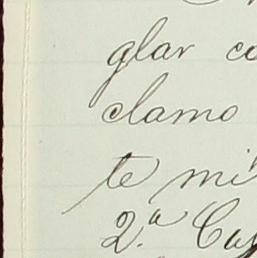 glar co
clamo
te mi
2.ª Cas